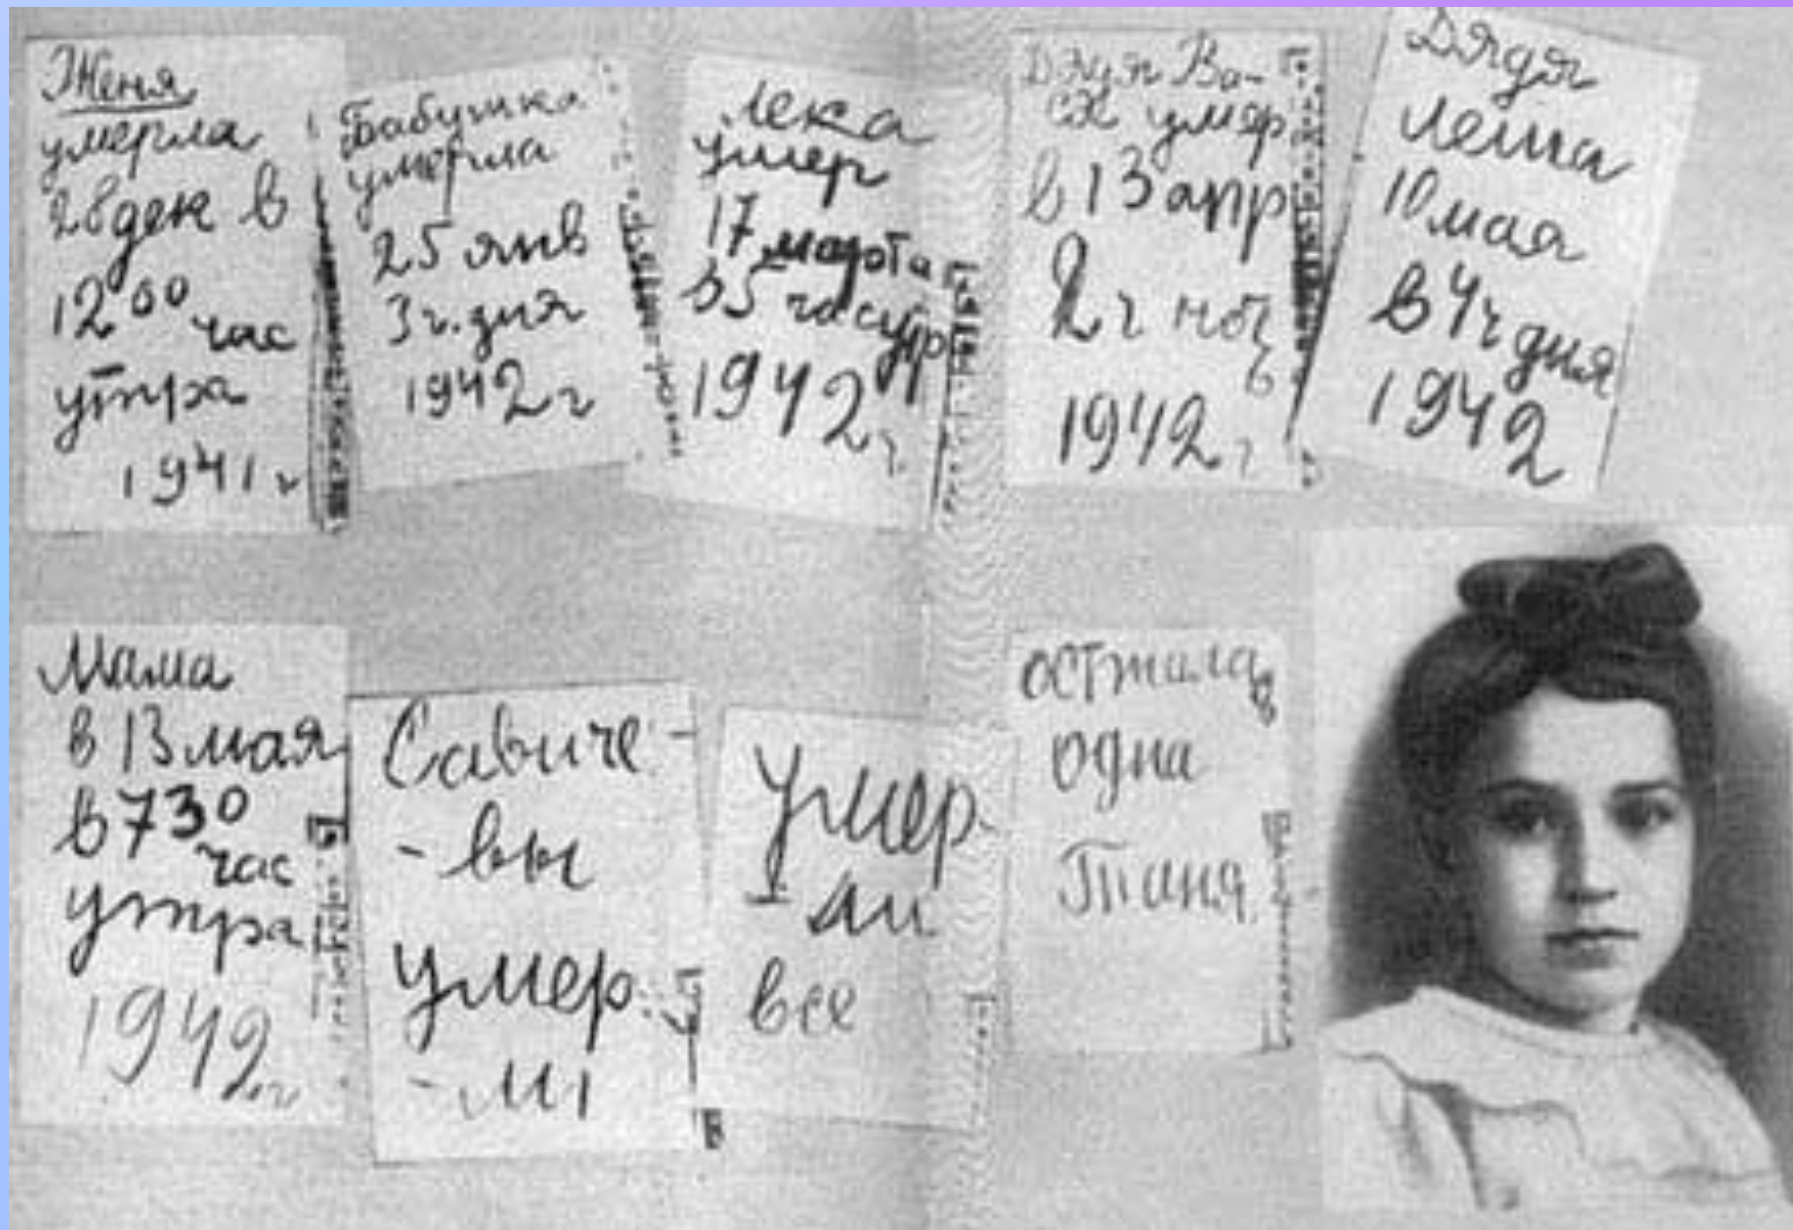 Женя
умерла
28 дек в
12⁰⁰ час
утра
1941 г
Бабушка
умерла
25 янв
3 ч. дня
1942 г
Лека
умер
17 марта
в 5 час утр
1942 г
Дядя Ва-
ся умер
в 13 апр
2 ч ноч
ь
1942 г
Дядя
Леша
10 мая
в 4 ч дня
1942
Мама
в 13 мая
в 7³⁰
час
утра
1942 г
Савиче-
-вы
умер
-ли
Умер-
ли
все
осталас
одна
Таня